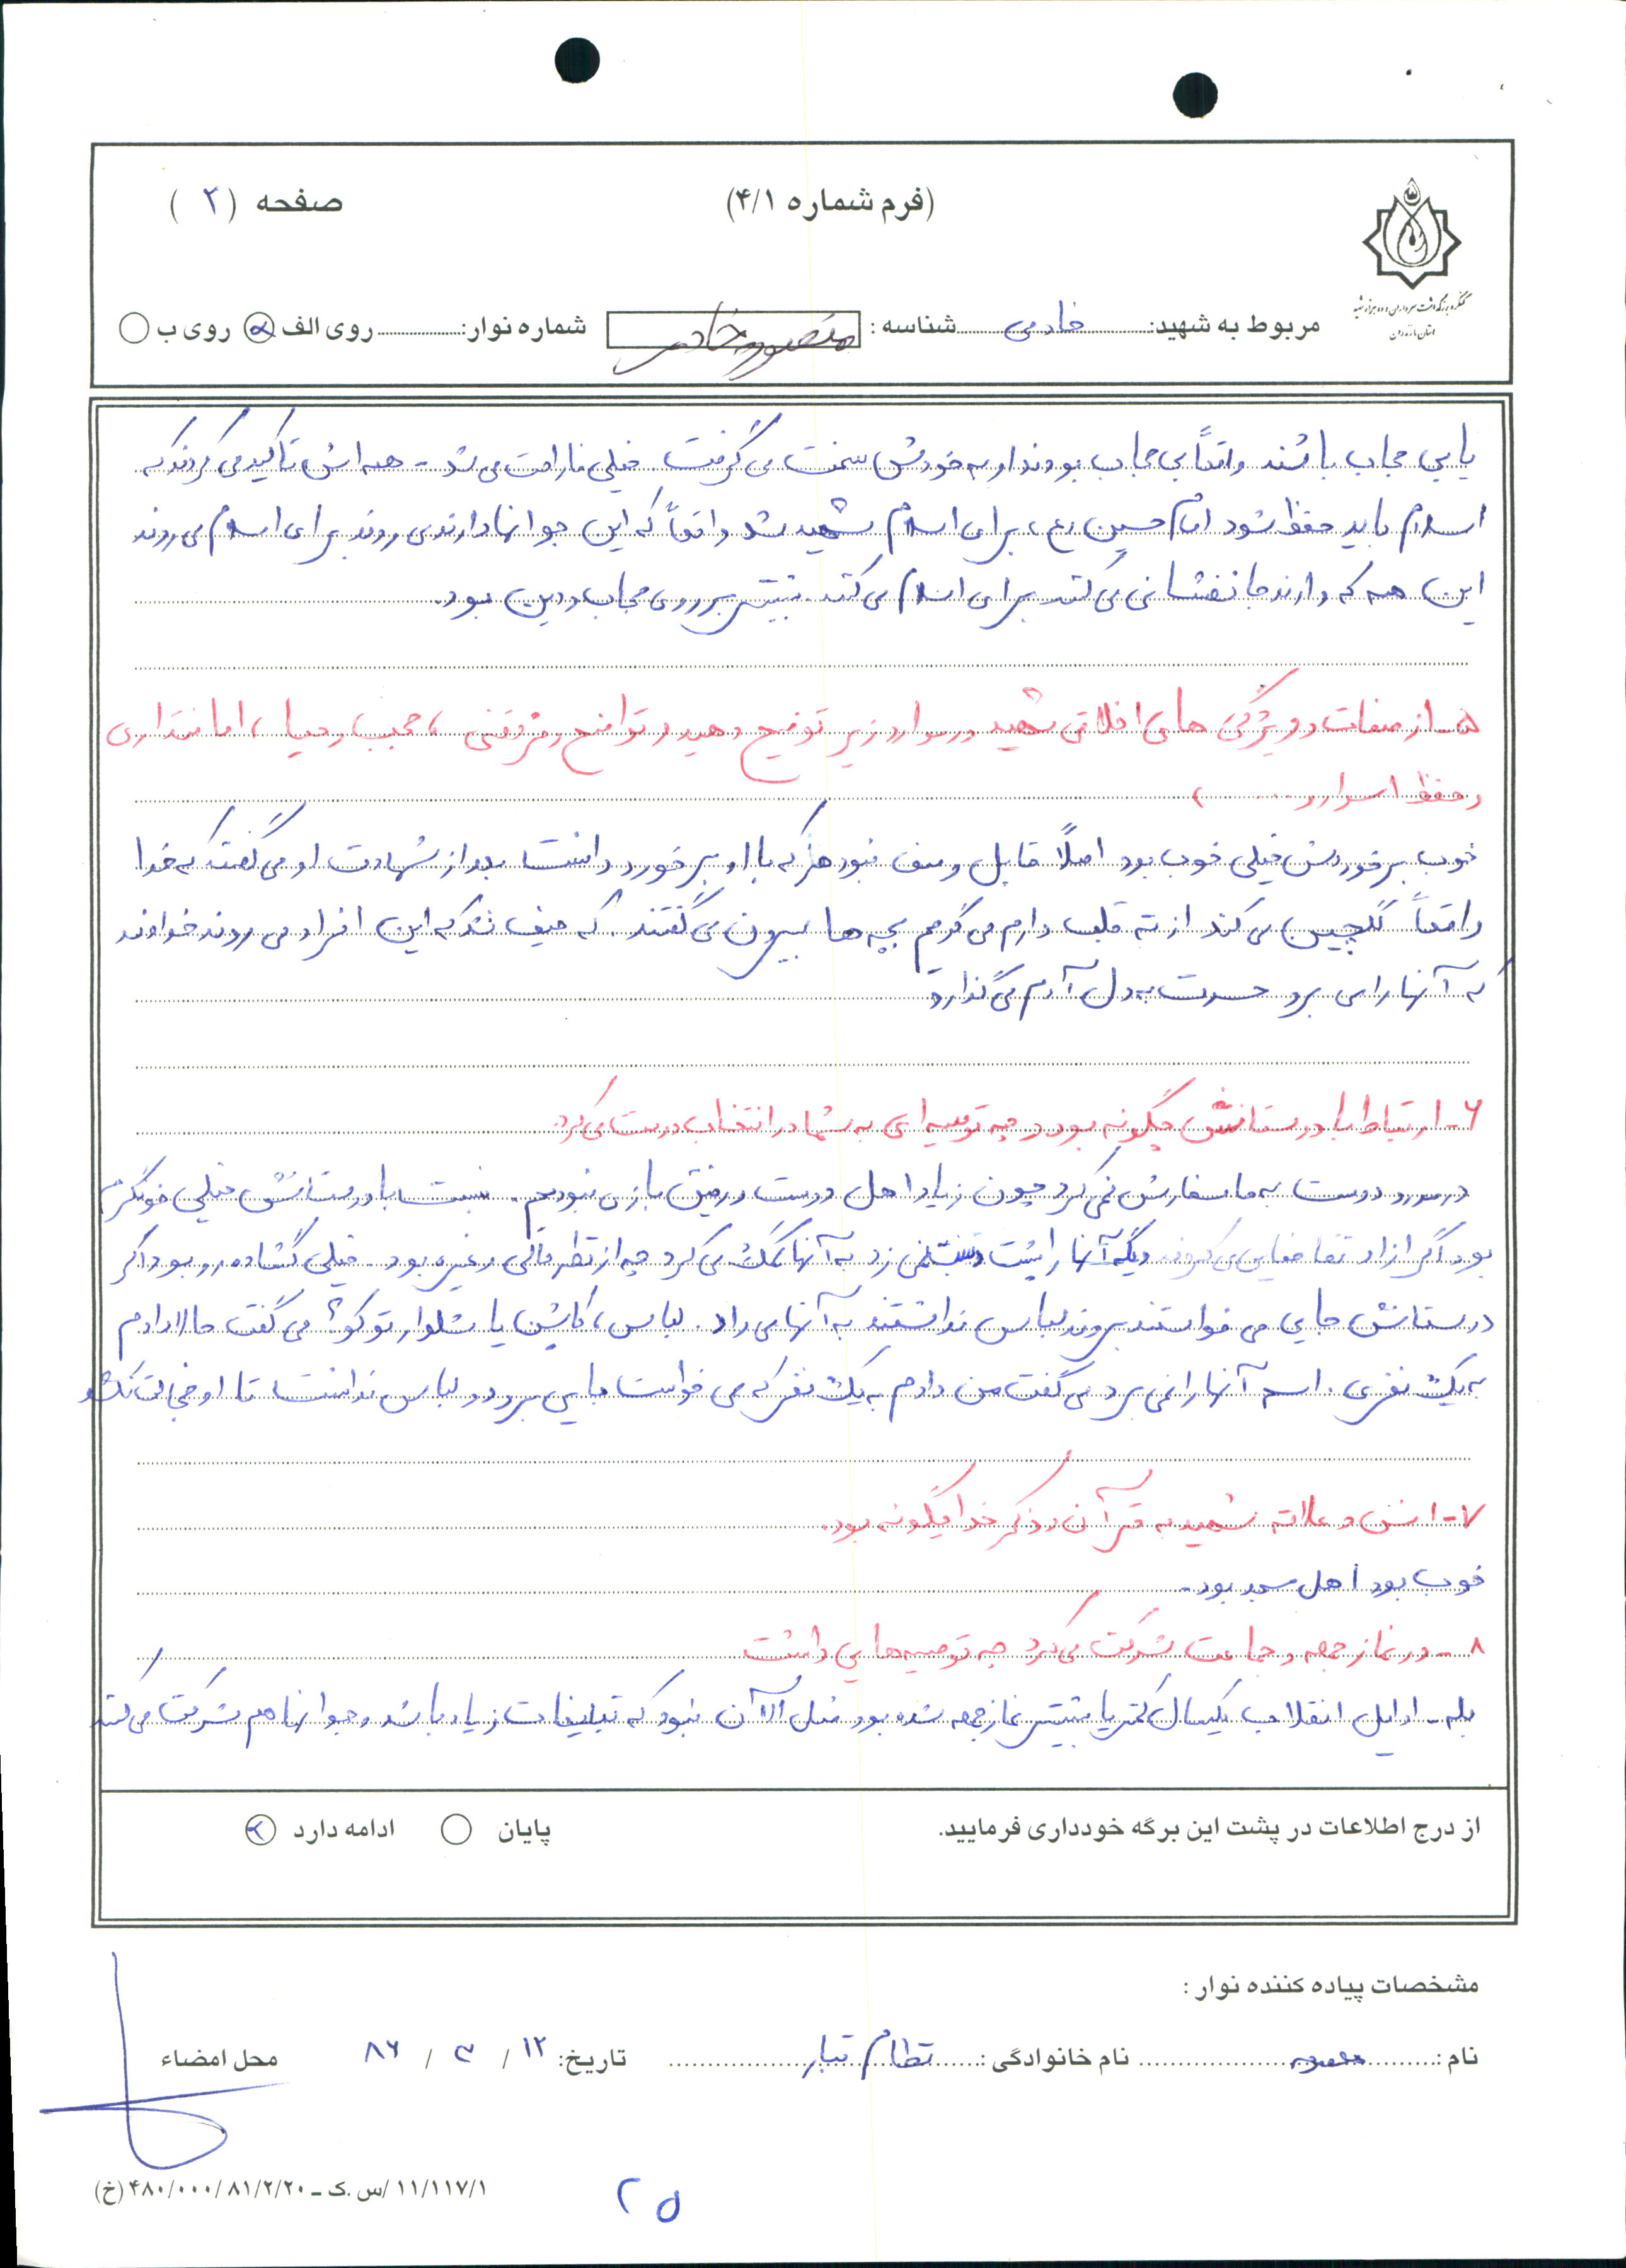 (فرم شماره ۴/۱)
صفحه (۲)
کنگره بزرگداشت سرداران و ده هزار شهید
استان مازندران
مربوط به شهید: خادمی شناسه: منصور خادمی شماره نوار: روی الف روی ب
یا بی حجاب باشند واقعاً بی حجاب بودند او به خودش سخت می گرفت. خیلی ناراحت می شد - همه اش تاکید می کردند که
اسلام باید حفظ شود امام حسین (ع) برای اسلام شهید شد واقعاً که این جوانها دارند می روند برای اسلام می روند
این همه که دارند جانفشانی می کنند برای اسلام می کنند. بیشتر بر روی حجاب و دین بود.
۵- از صفات و ویژگی های اخلاقی شهید در موارد زیر توضیح دهید (تواضع و فروتنی، حجب و حیا، امانتداری
و حفظ اسرار و ... )
خوب برخوردش خیلی خوب بود اصلاً قابل وصف نبود هرکه با او برخورد داشت بعد از شهادت او می گفت که خدا
واقعاً گلچین می کند از ته قلب دارم می گویم بچه ها بیرون می گفتند. که حیف شد که این افراد می روند خداوند
که آنها را می برد حسرت به دل آدم می گذارد
۶- ارتباط با دوستانش چگونه بود و چه توصیه ای به شما در انتخاب دوست می کرد.
در مورد دوست به ما سفارش نمی کرد چون زیاد اهل دوست و رفیق بازی نبودیم. نسبت با دوستانش خیلی خونگرم
بود اگر از او تقاضایی می کردند دیگه آنها را پشت نمی زد به آنها کمک می کرد چه از نظر مالی و غیره بود - خیلی گشاده رو بود اگر
دوستانش جایی می خواستند بروند لباس نداشتند به آنها می داد. لباس، کاپشن یا شلوار تو کو؟ می گفت حالا دادم
به یک نفری. اسم آنها را نمی برد می گفت من دادم به یک نفر که می خواست جایی برود و لباس نداشت تا او خجالت نکشد
۷- انس و علاقه شهید به قرآن و ذکر خدا چگونه بود.
خوب بود اهل مسجد بود.
۸- در نماز جمعه و جماعت شرکت می کرد چه توصیه هایی داشت
بله - اوایل انقلاب یکسال کمتر یا بیشتر نماز جمعه شده بود مثل الآن نبود که تبلیغات زیاد باشد و جوانها هم شرکت می کنند
از درج اطلاعات در پشت این برگه خودداری فرمایید. پایان ادامه دارد
مشخصات پیاده کننده نوار:
نام: معصومه نام خانوادگی: نظام تبار تاریخ: ۱۲ / ۳ / ۸۶ محل امضاء
۱۱/۱۱۷/۱ /س.ک - ۴۸۰/۰۰۰/۸۱/۲/۲۰ (خ)
۲۵